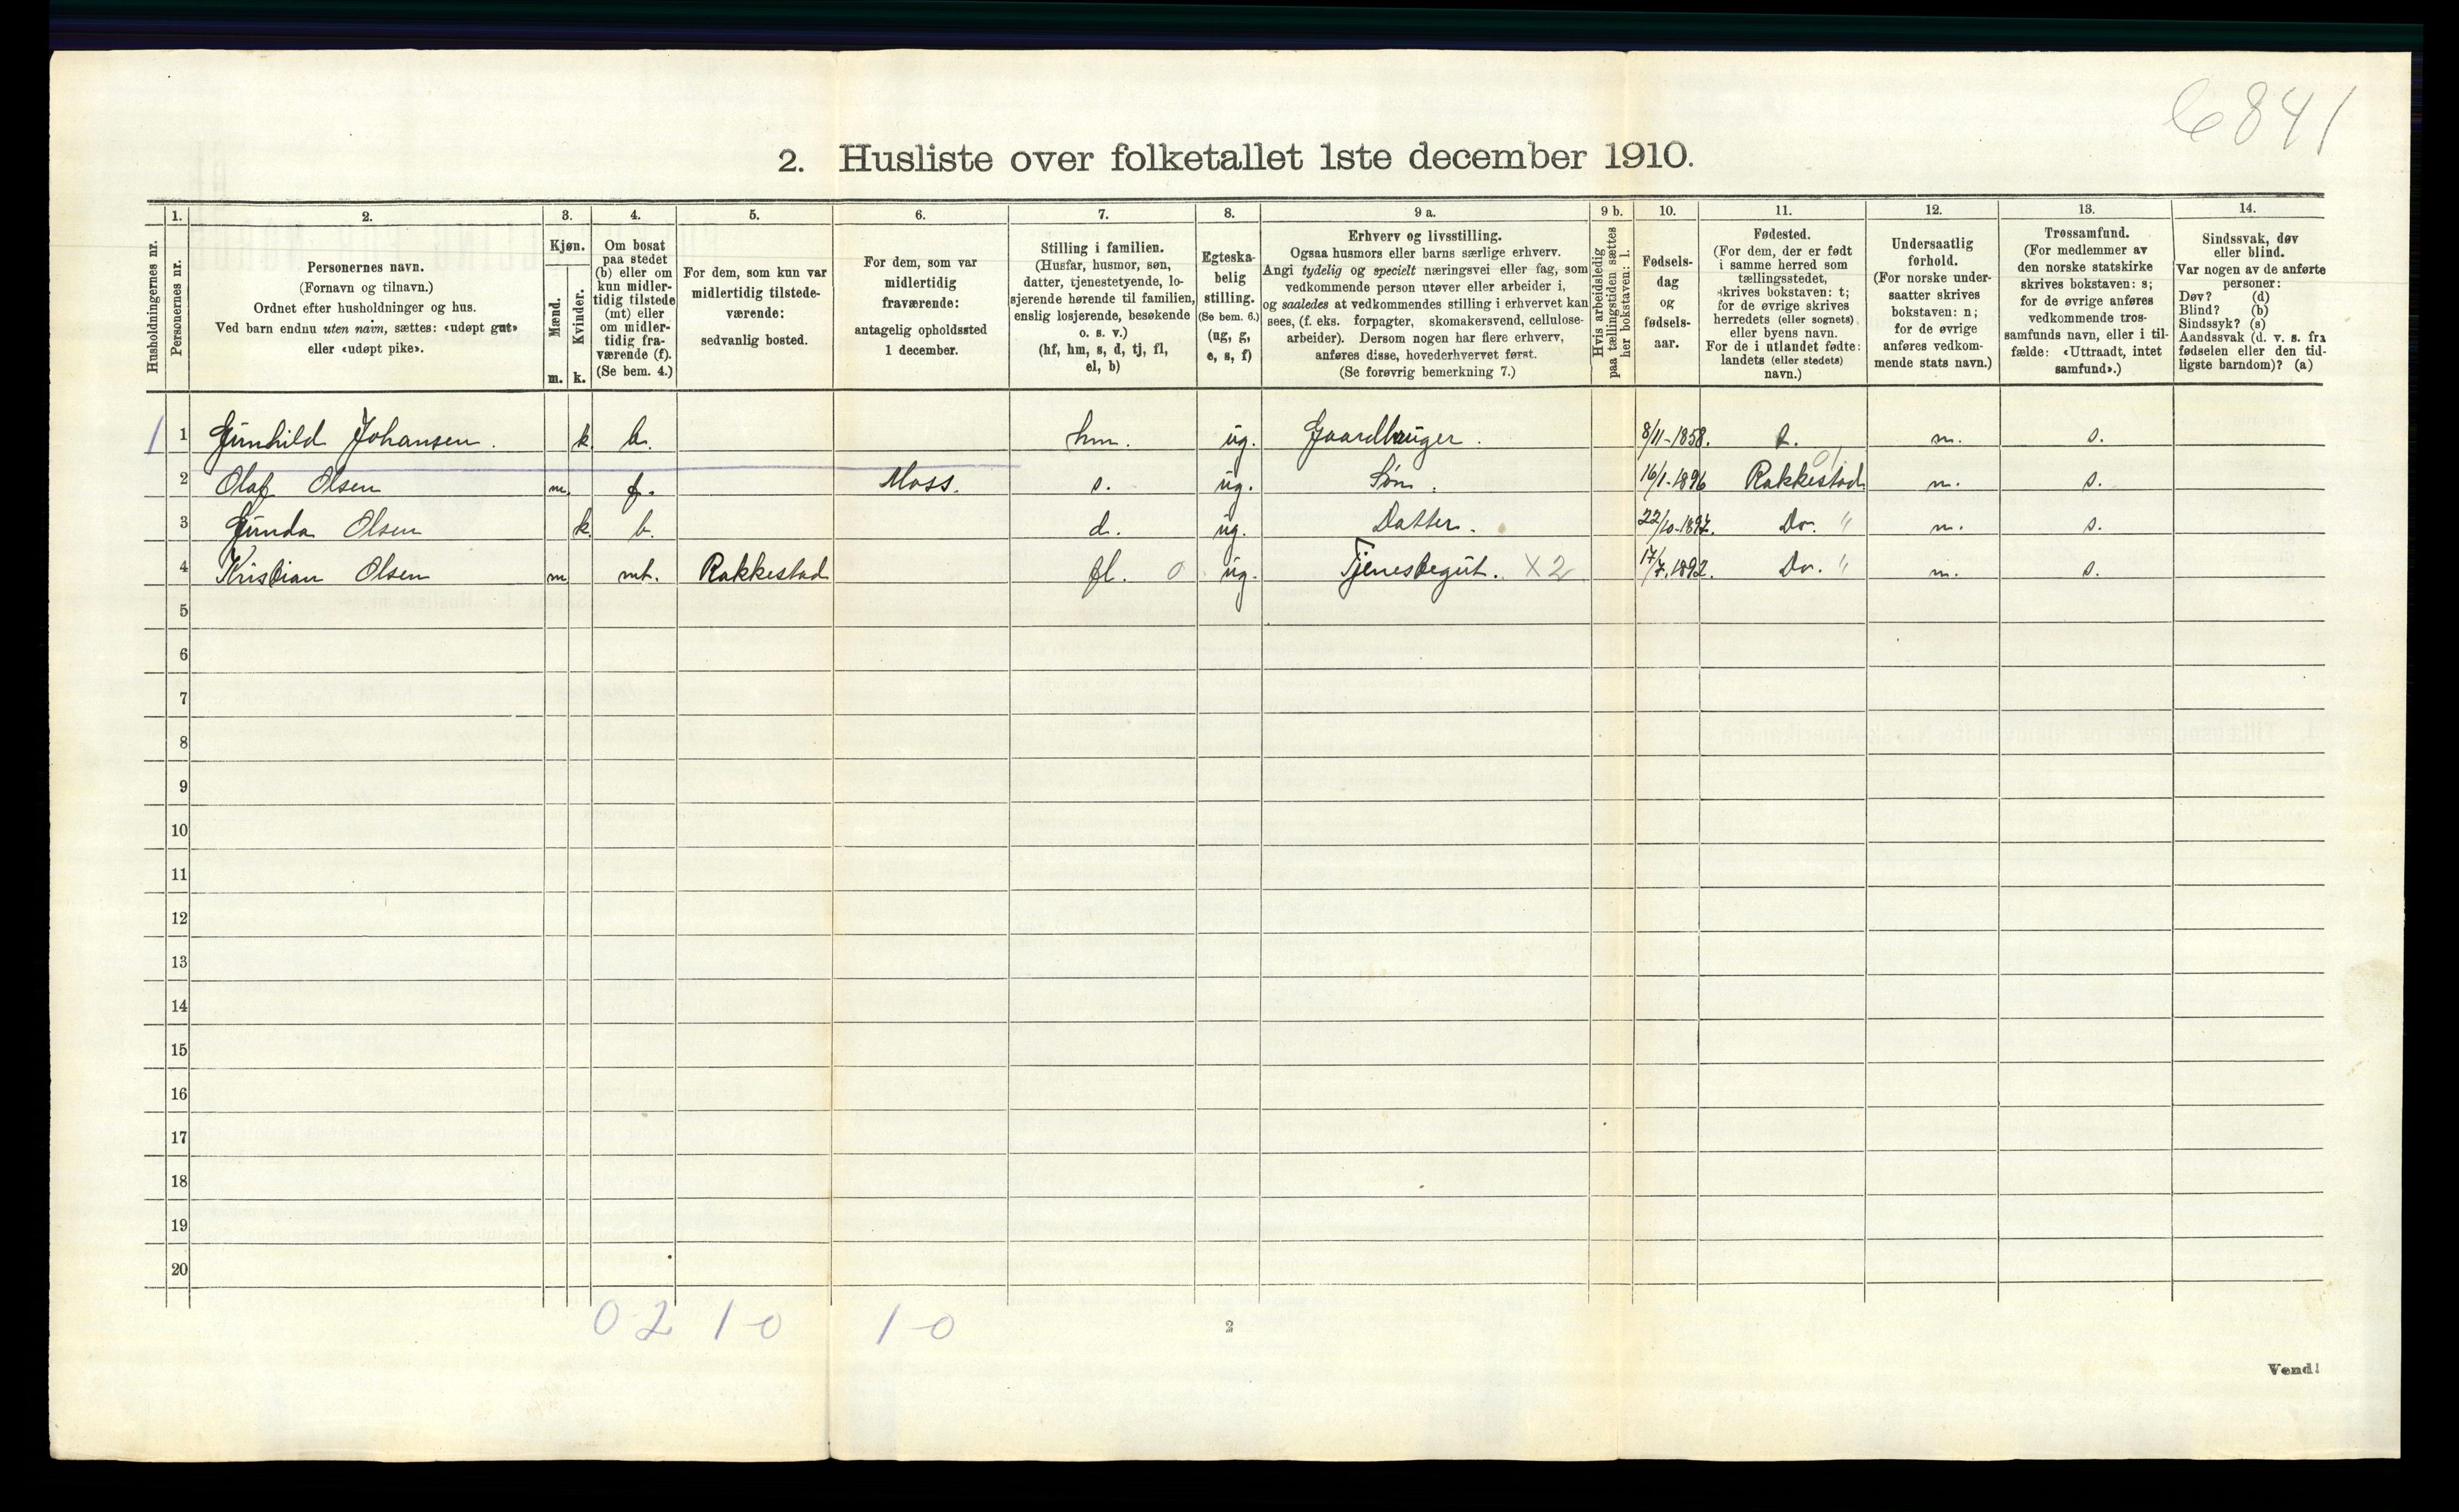 6841
2. Husliste over folketallet 1ste december 1910.
Husholdningernes nr.
1.
Personernes nr.
2.
Personernes navn.
(Fornavn og tilnavn.)
Ordnet efter husholdninger og hus.
Ved barn endnu uten navn, sættes: «udøpt gut»
eller «udøpt pike».
3.
Kjøn.
Mænd.
m.
Kvinder.
k.
4.
Om bosat
paa stedet
(b) eller om
kun midler-
tidig tilstede
(mt) eller
om midler-
tidig fra-
værende (f).
(Se bem. 4.)
5.
For dem, som kun var
midlertidig tilstede-
værende:
sedvanlig bosted.
6.
For dem, som var
midlertidig
fraværende:
antagelig opholdssted
1 december.
7.
Stilling i familien.
(Husfar, husmor, søn,
datter, tjenestetyende, lo-
sjerende hørende til familien,
enslig losjerende, besøkende
o. s. v.)
(hf, hm, s, d, tj, fl,
el, b)
8.
Egteska-
belig
stilling.
(Se bem. 6.)
(ug, g,
e, s, f)
9 a.
Erhverv og livsstilling.
Ogsaa husmors eller barns særlige erhverv.
Angi tydelig og specielt næringsvei eller fag, som
vedkommende person utøver eller arbeider i,
og saaledes at vedkommendes stilling i erhvervet kan
sees, (f. eks. forpagter, skomakersvend, cellulose-
arbeider). Dersom nogen har flere erhverv,
anføres disse, hovederhvervet først.
(Se forøvrig bemerkning 7.)
9 b.
Hvis arbeidsledig
paa tællingstiden sættes
her bokstaven: l.
10.
Fødsels-
dag
og
fødsels-
aar.
11.
Fødested.
(For dem, der er født
i samme herred som
tællingsstedet,
skrives bokstaven: t;
for de øvrige skrives
herredets (eller sognets)
eller byens navn.
For de i utlandet fødte:
landets (eller stedets)
navn.)
12.
Undersaatlig
forhold.
(For norske under-
saatter skrives
bokstaven: n;
for de øvrige
anføres vedkom-
mende stats navn.)
13.
Trossamfund.
(For medlemmer av
den norske statskirke
skrives bokstaven: s;
for de øvrige anføres
vedkommende tros-
samfunds navn, eller i til-
fælde: «Uttraadt, intet
samfund».)
14.
Sindssvak, døv
eller blind.
Var nogen av de anførte
personer:
Døv? (d)
Blind? (b)
Sindssyk? (s)
Aandssvak (d. v. s. fra
fødselen eller den tid-
ligste barndom)? (a)
1 1 Gunhild Johansen. k. b. hm. ug. Gaardbruger. 8/11-1858. n. s.
2 Olaf Olsen m. f. Moss. s. ug. Søn. 16/1-1896 Rakkestad n. s.
3 Gunda Olsen k. b. d. ug. Datter. 22/10-1897. Do. " n. s.
4 Kristian Olsen m mt. Rakkestad fl. 0 ug. Tjenestegut. X2 17/7.1892. Do. " n. s.
5
6
7
8
9
10
11
12
13
14
15
16
17
18
19
20
0-2 1-0 1-0
2
Vend!